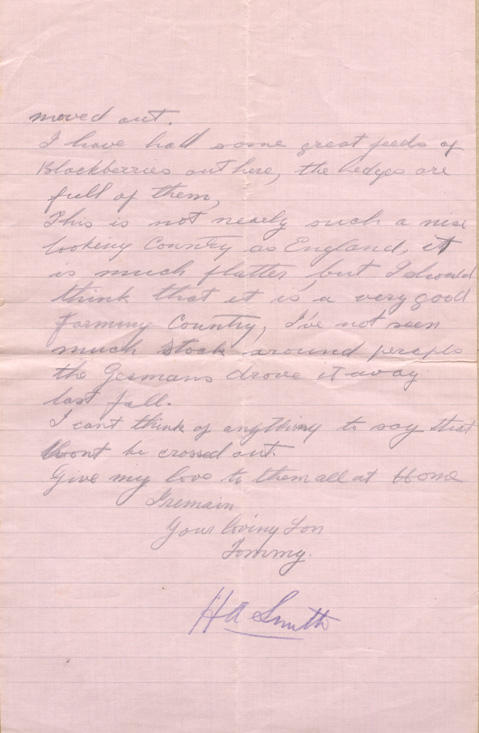 moved out.
I have had some great feeds of
Blackberries out here, the hedges are
full of them,
This is not nearly such a nice
looking Country as England, it
is much flatter but I should
think that it is a very good
farming Country, I've not seen
much stock around perhaps
the Germans drove it away
last fall.
I cant think of anything to say that
Wont be crossed out.
Give my love to them all at Home
I remain
Your loving Son
Tommy.
HA Smith